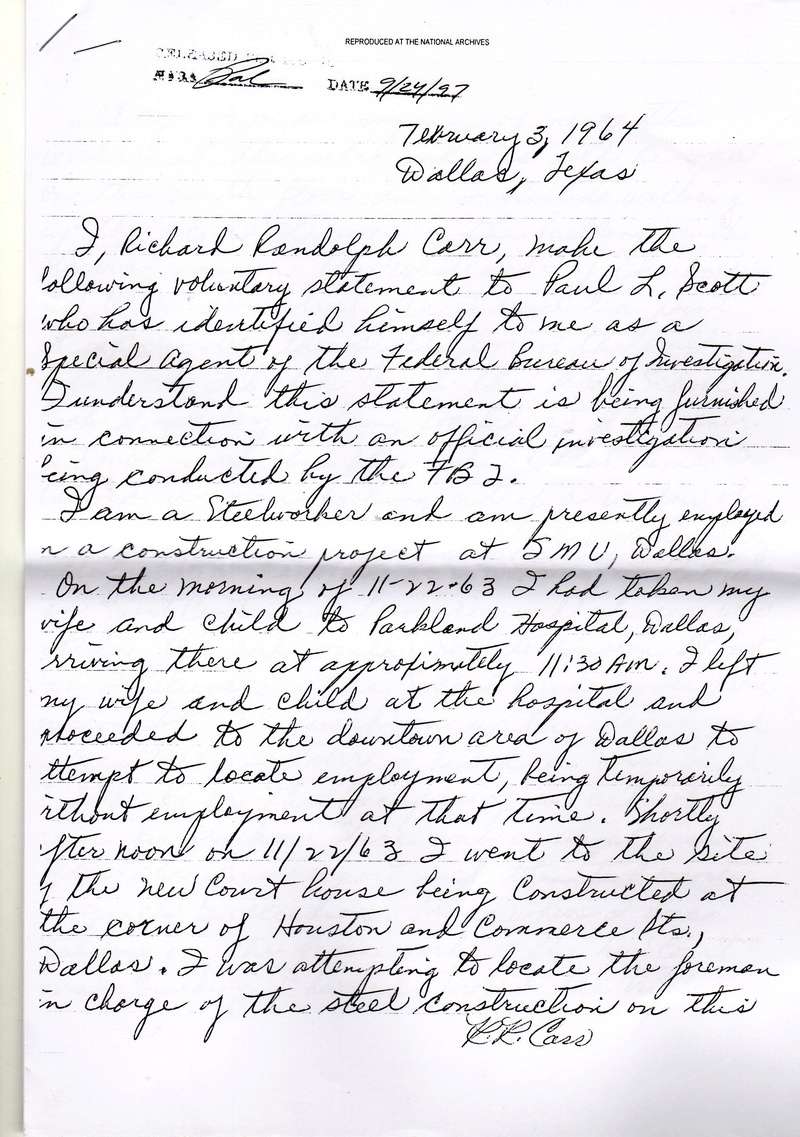 1-
REPRODUCED AT THE NATIONAL ARCHIVES
RELEASED
NARA DATE 9/24/97
February 3, 1964
Dallas, Texas
I, Richard Randolph Carr, make the
ollowing voluntary statement to Paul L. Scott
who has identified himself to me as a
Special Agent of the Federal Bureau of Investigation.
I understand this statement is being furnished
in connection with an official investigation
eing conducted by the FBI.
I am a Steelworker and am presently employed
n a construction project at SMU, Dallas.
On the morning of 11-22-63 I had taken my
wife and child to Parkland Hospital, Dallas,
rriving there at approximately 11:30 AM. I left
my wife and child at the hospital and
proceeded to the downtown area of Dallas to
ttempt to locate employment, being temporarily
ithout employment at that time. Shortly
fter noon on 11/22/63 I went to the site
f the new Court house being constructed at
the corner of Houston and Commerce Sts.,
Dallas. I was attempting to locate the foreman
in charge of the steel construction on this
R.R. Carr